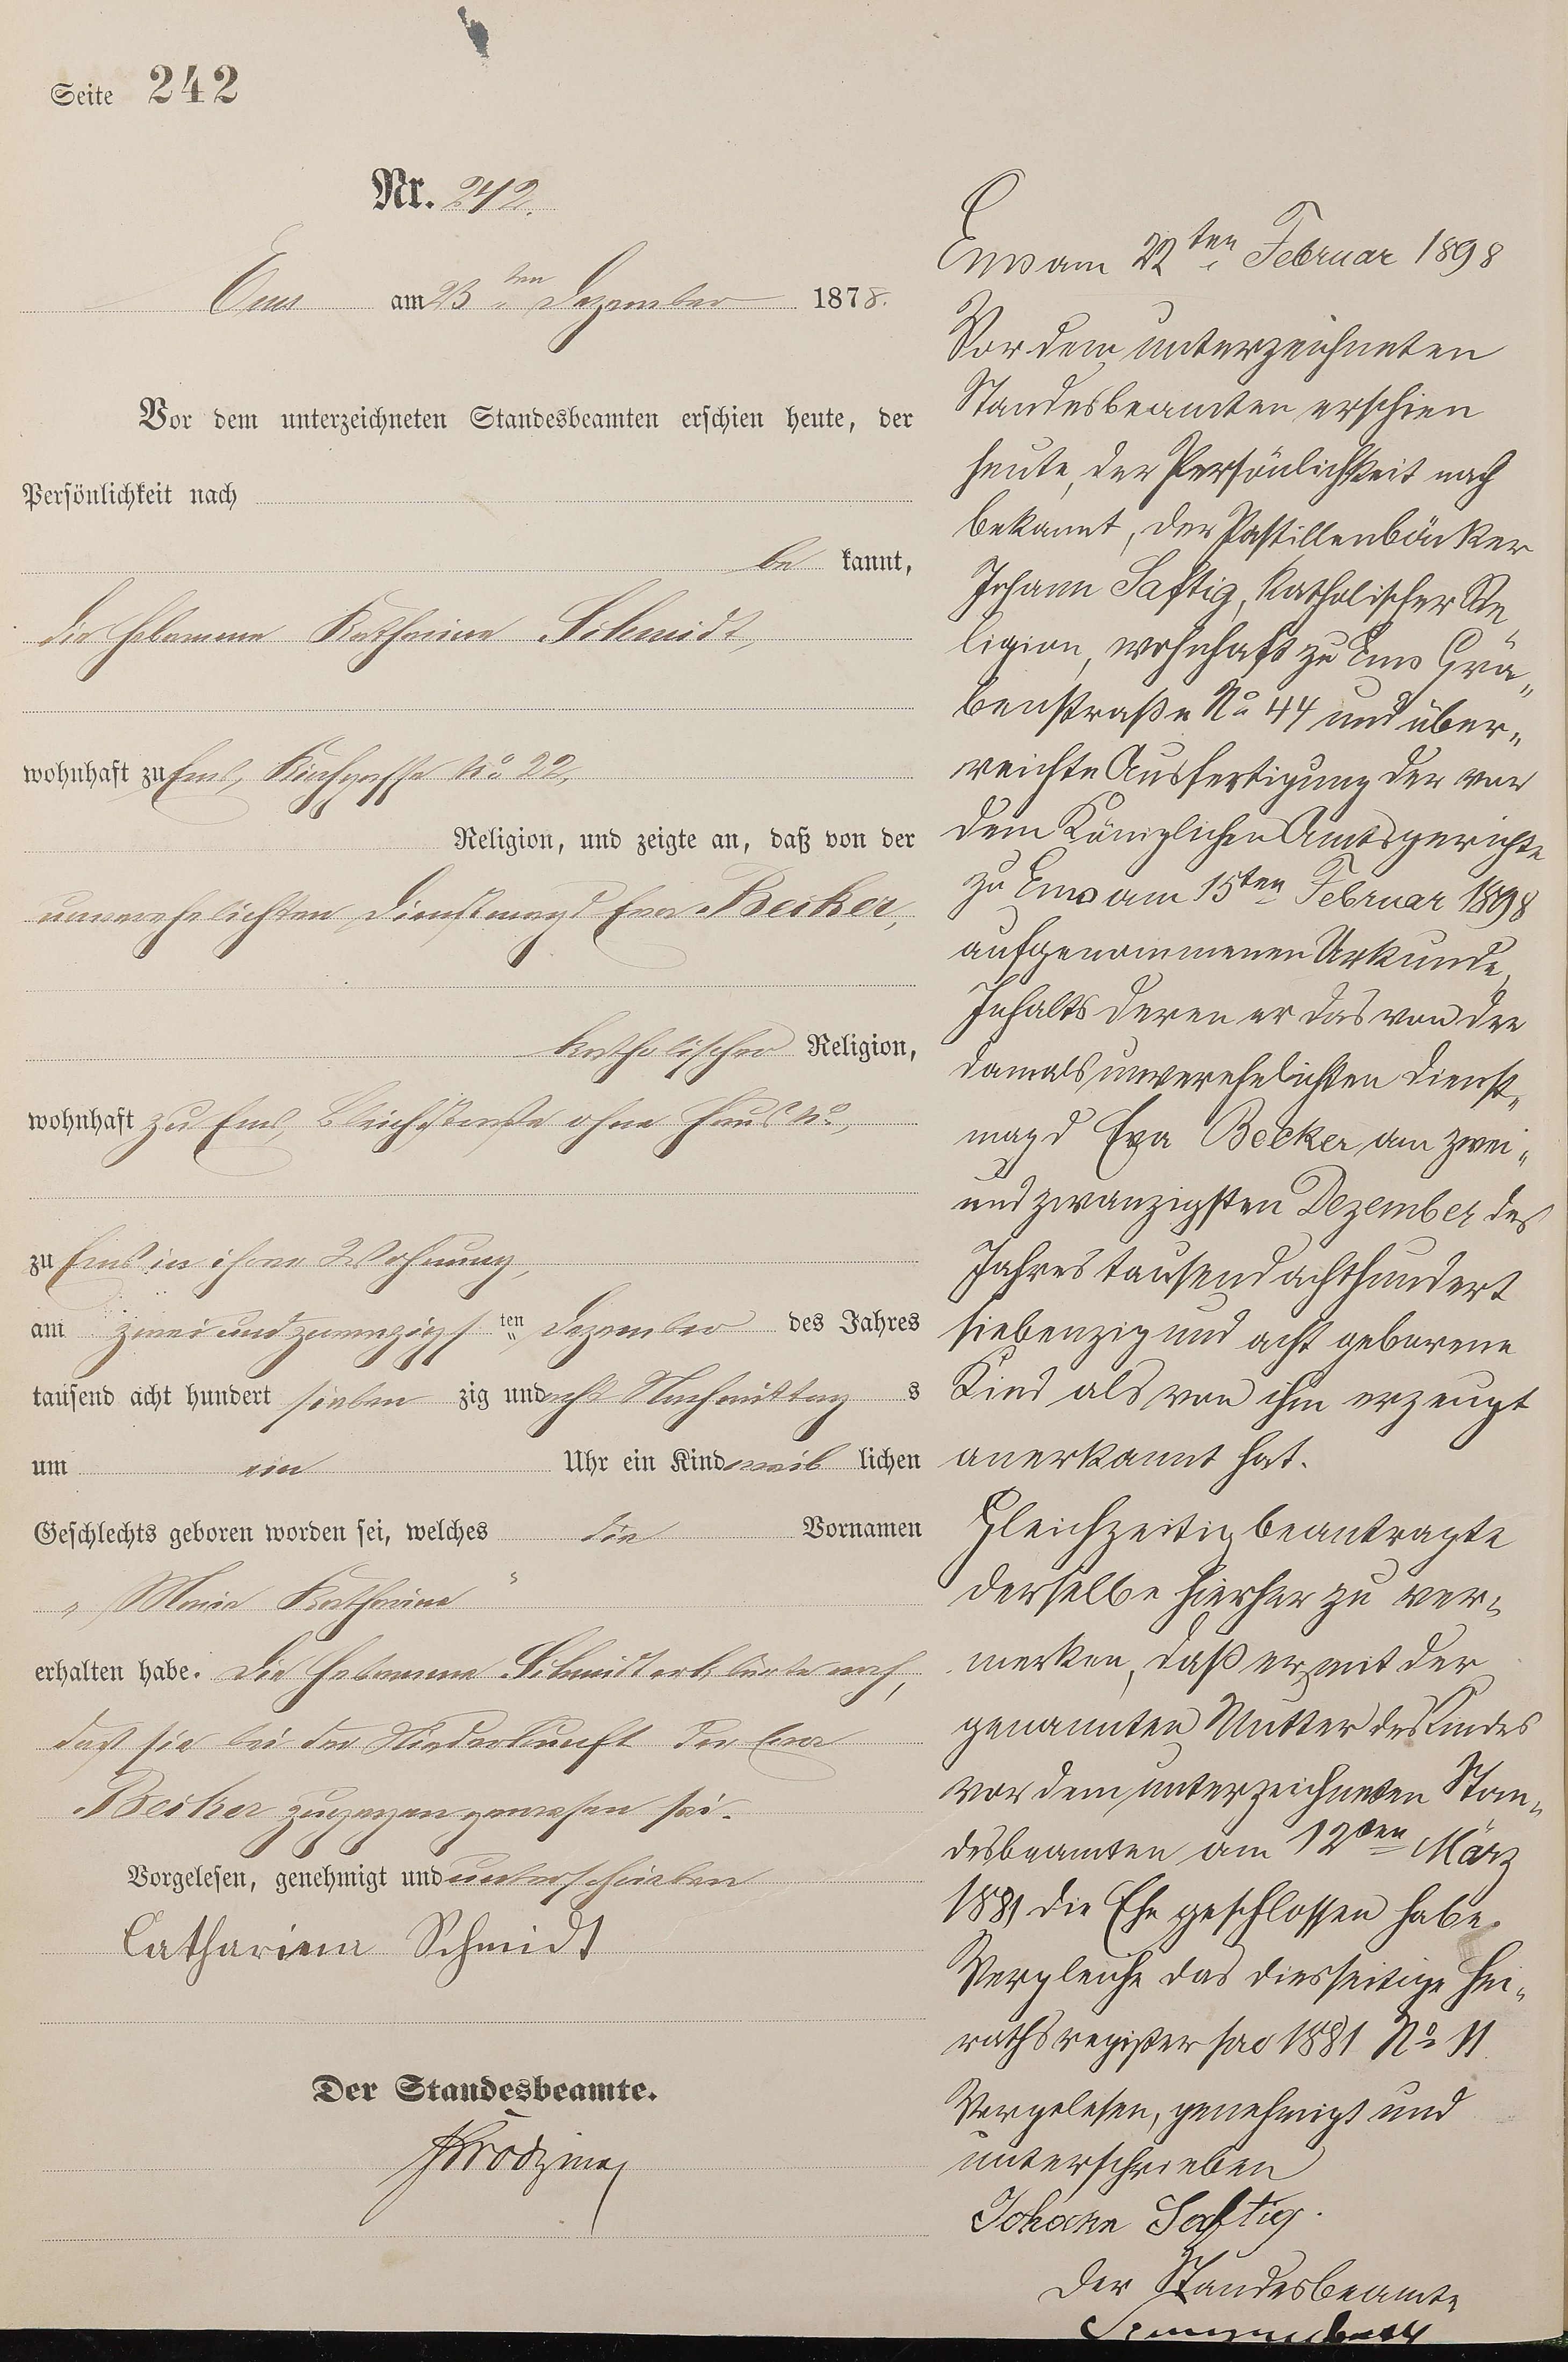 Seite 242
Nr. 242.
Ems am 23ten Dezember 1878.
Vor dem unterzeichneten Standesbeamten erschien heute, der
Persönlichkeit nach
be kannt,
die Hebamme Katharina Schmidt,
wohnhaft zu Ems, Kirchgasse No 22,
Religion, und zeigte an, daß von der
unverehelichten Dienstmagd Eva Becker,
katholischer Religion,
wohnhaft zu Ems, Bleichstraße ohne Haus No,
zu Ems in ihrer Wohnung,
am zwei und zwanzigs ten Dezember des Jahres
tausend acht hundert sieben zig und acht Nachmittag s
um ein Uhr ein Kind weib lichen
Geschlechts geboren worden sei, welches die Vornamen
„Maria Katharina“
erhalten habe. Die Hebamme Schmidt erklärte noch,
daß sie bei der Niederkunft der Eva
Becker zugegen gewesen sei.
Vorgelesen, genehmigt und unterschrieben
Catharina Schmidt
Der Standesbeamte.
Ems am 22ten Februar 1898
Vor dem unterzeichneten
Standesbeamten erschien
heute, der Persönlichkeit nach
bekannt, der Pastillenbäcker
Johann Saftig, katholischer Re„
ligion, wohnhaft zu Ems Grä„
benstraße No 44 und über„
reichte Ausfertigung der vor
dem Königlichen Amtsgerichte
zu Ems am 15ten Februar 1898
aufgenommenen Urkunde,
Inhalts deren er das von der
damals unverehelichten Dienst„
magd Eva Becker am zwei„
und zwanzigsten Dezember des
Jahres tausend achthundert
siebenzig und acht geborene
Kind als von ihm erzeugt
anerkannt hat.
Gleichzeitig beantragte
derselbe hierher zu ver„
merken, daß er mit der
genannten Mutter des Kindes
vor dem unterzeichneten Stan„
desbeamten am 12ten März
1881 die Ehe geschlossen habe.
Vergleiche das diesseitige Hei„
rathsregister pro 1881 No 11
Vorgelesen, genehmigt und
unterschrieben
Johann Saftig.
Der Standesbeamte